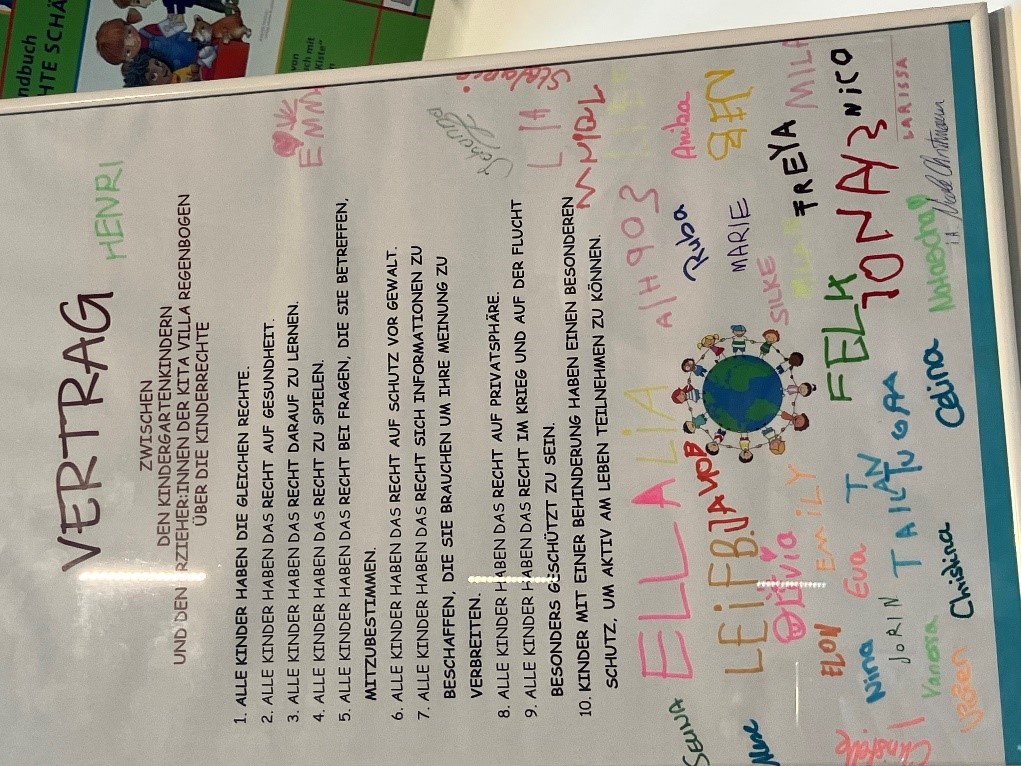 ndbuch
HTE SCHÄ
von
ch mit
Kiste"
VERTRAG
HENRI
ZWISCHEN
DEN KINDERGARTENKINDERN
UND DEN RZIEHER:INNEN DER KITA VILLA REGENBOGEN
ÜBER DIE KINDERRECHTE
1. ALLE KINDER HABEN DIE GLEICHEN RECHTE.
2. ALLE KINDER HABEN DAS RECHT AUF GESUNDHEIT.
3. ALLE KINDER HABEN DAS RECHT DARAUF ZU LERNEN.
4. ALLE KINDER HABEN DAS RECHT ZU SPIELEN.
5. ALLE KINDER HABEN DAS RECHT BEI FRAGEN, DIE SIE BETREFFEN,
MITZUBESTIMMEN.
6. ALLE KINDER HABEN DAS RECHT AUF SCHUTZ VOR GEWALT.
7. ALLE KINDER HABEN DAS RECHT SICH INFORMATIONEN ZU
BESCHAFFEN, DIE SIE BRAUCHEN UM IHRE MEINUNG ZU
VERBREITEN.
8. ALLE KINDER HABEN DAS RECHT AUF PRIVATSPHÄRE.
9. ALLE KINDER HABEN DAS RECHT IM KRIEG UND AUF DER FLUCHT
BESONDERS GESCHÜTZT ZU SEIN.
10. KINDER MIT EINER BEHINDERUNG HABEN EINEN BESONDEREN
SCHUTZ, UM AKTIV AM LEBEN TEILNEHMEN ZU KÖNNEN.
EMMA
Johanna
Stefanie
LIA
ELLA LiA
Anika
SEUNA
LEiF
Ruba
MARIE
BEN
Olivia
SILKE
FREYA
MILA
ELON
EMiLY
FELIX
NiCO
Nina
Eva
JONA
LARISSA
JORIN
TUGAA
Vanora
Christina
Celina